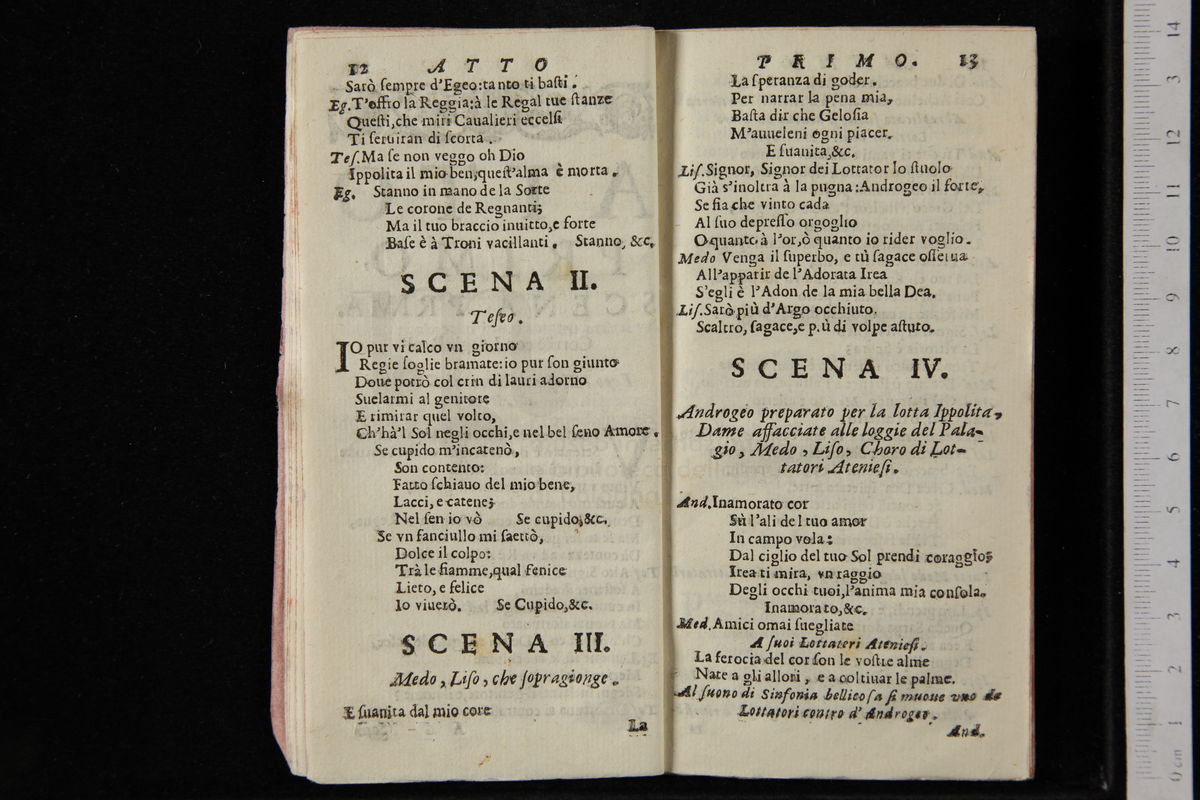 12 ATTO
Sarò sempre d'Egeo: tanto ti basti.
Eg. T'offro la Reggia: à le Regal tue stanze
Questi, che miri Caualieri eccelsi
Ti seruiran di scorta.
Tes. Ma se non veggo oh Dio
Ippolita il mio ben, quest'alma è morta.
Eg. Stanno in mano de la Sorte
Le corone de Regnanti;
Ma il tuo braccio inuitto, e forte
Base è à Troni vacillanti. Stanno, &c.
SCENA II.
Teseo.
IO pur vi calco vn giorno
Regie soglie bramate: io pur son giunto
Doue potrò col crin di lauri adorno
Suelarmi al genitore
E rimirar quel volto,
Ch'hà'l Sol negli occhi, e nel bel seno Amore.
Se cupido m'incatenò,
Son contento:
Fatto schiauo del mio bene,
Lacci, e catene;
Nel sen io vò Se cupido, &c.
Se vn fanciullo mi saettò,
Dolce il colpo:
Trà le fiamme, qual fenice
Lieto, e felice
Io viuerò. Se Cupido, &c.
SCENA III.
Medo, Liso, che sopragionge.
E suanita dal mio core
La
PRIMO. 13
La speranza di goder.
Per narrar la pena mia,
Basta dir che Gelosia
M'auueleni ogni piacer.
E suanita, &c.
Lis. Signor, Signor dei Lottator lo stuolo
Già s'inoltra à la pugna: Androgeo il forte,
Se fia che vinto cada
Al suo depresso orgoglio
O quanto à l'or, ò quanto io rider voglio.
Medo Venga il superbo, e tù sagace osserua
All'apparir de l'Adorata Irea
S'egli è l'Adon de la mia bella Dea.
Lis. Sarò più d'Argo occhiuto.
Scaltro, sagace, e più di volpe astuto.
SCENA IV.
Androgeo preparato per la lotta Ippolita,
Dame affacciate alle loggie del Pala-
gio, Medo, Liso, Choro di Lot-
tatori Ateniesi.
And. Inamorato cor
Sù l'ali del tuo amor
In campo vola:
Dal ciglio del tuo Sol prendi coraggio;
Irea ti mira, vn raggio
Degli occhi tuoi, l'anima mia consola.
Inamorato, &c.
Med. Amici omai suegliate
A suoi Lottatori Ateniesi.
La ferocia del cor son le vostre alme
Nate a gli allori, e a coltiuar le palme.
Al suono di Sinfonia bellicosa si muoue vno de
Lottatori contro d'Androgeo.
And.